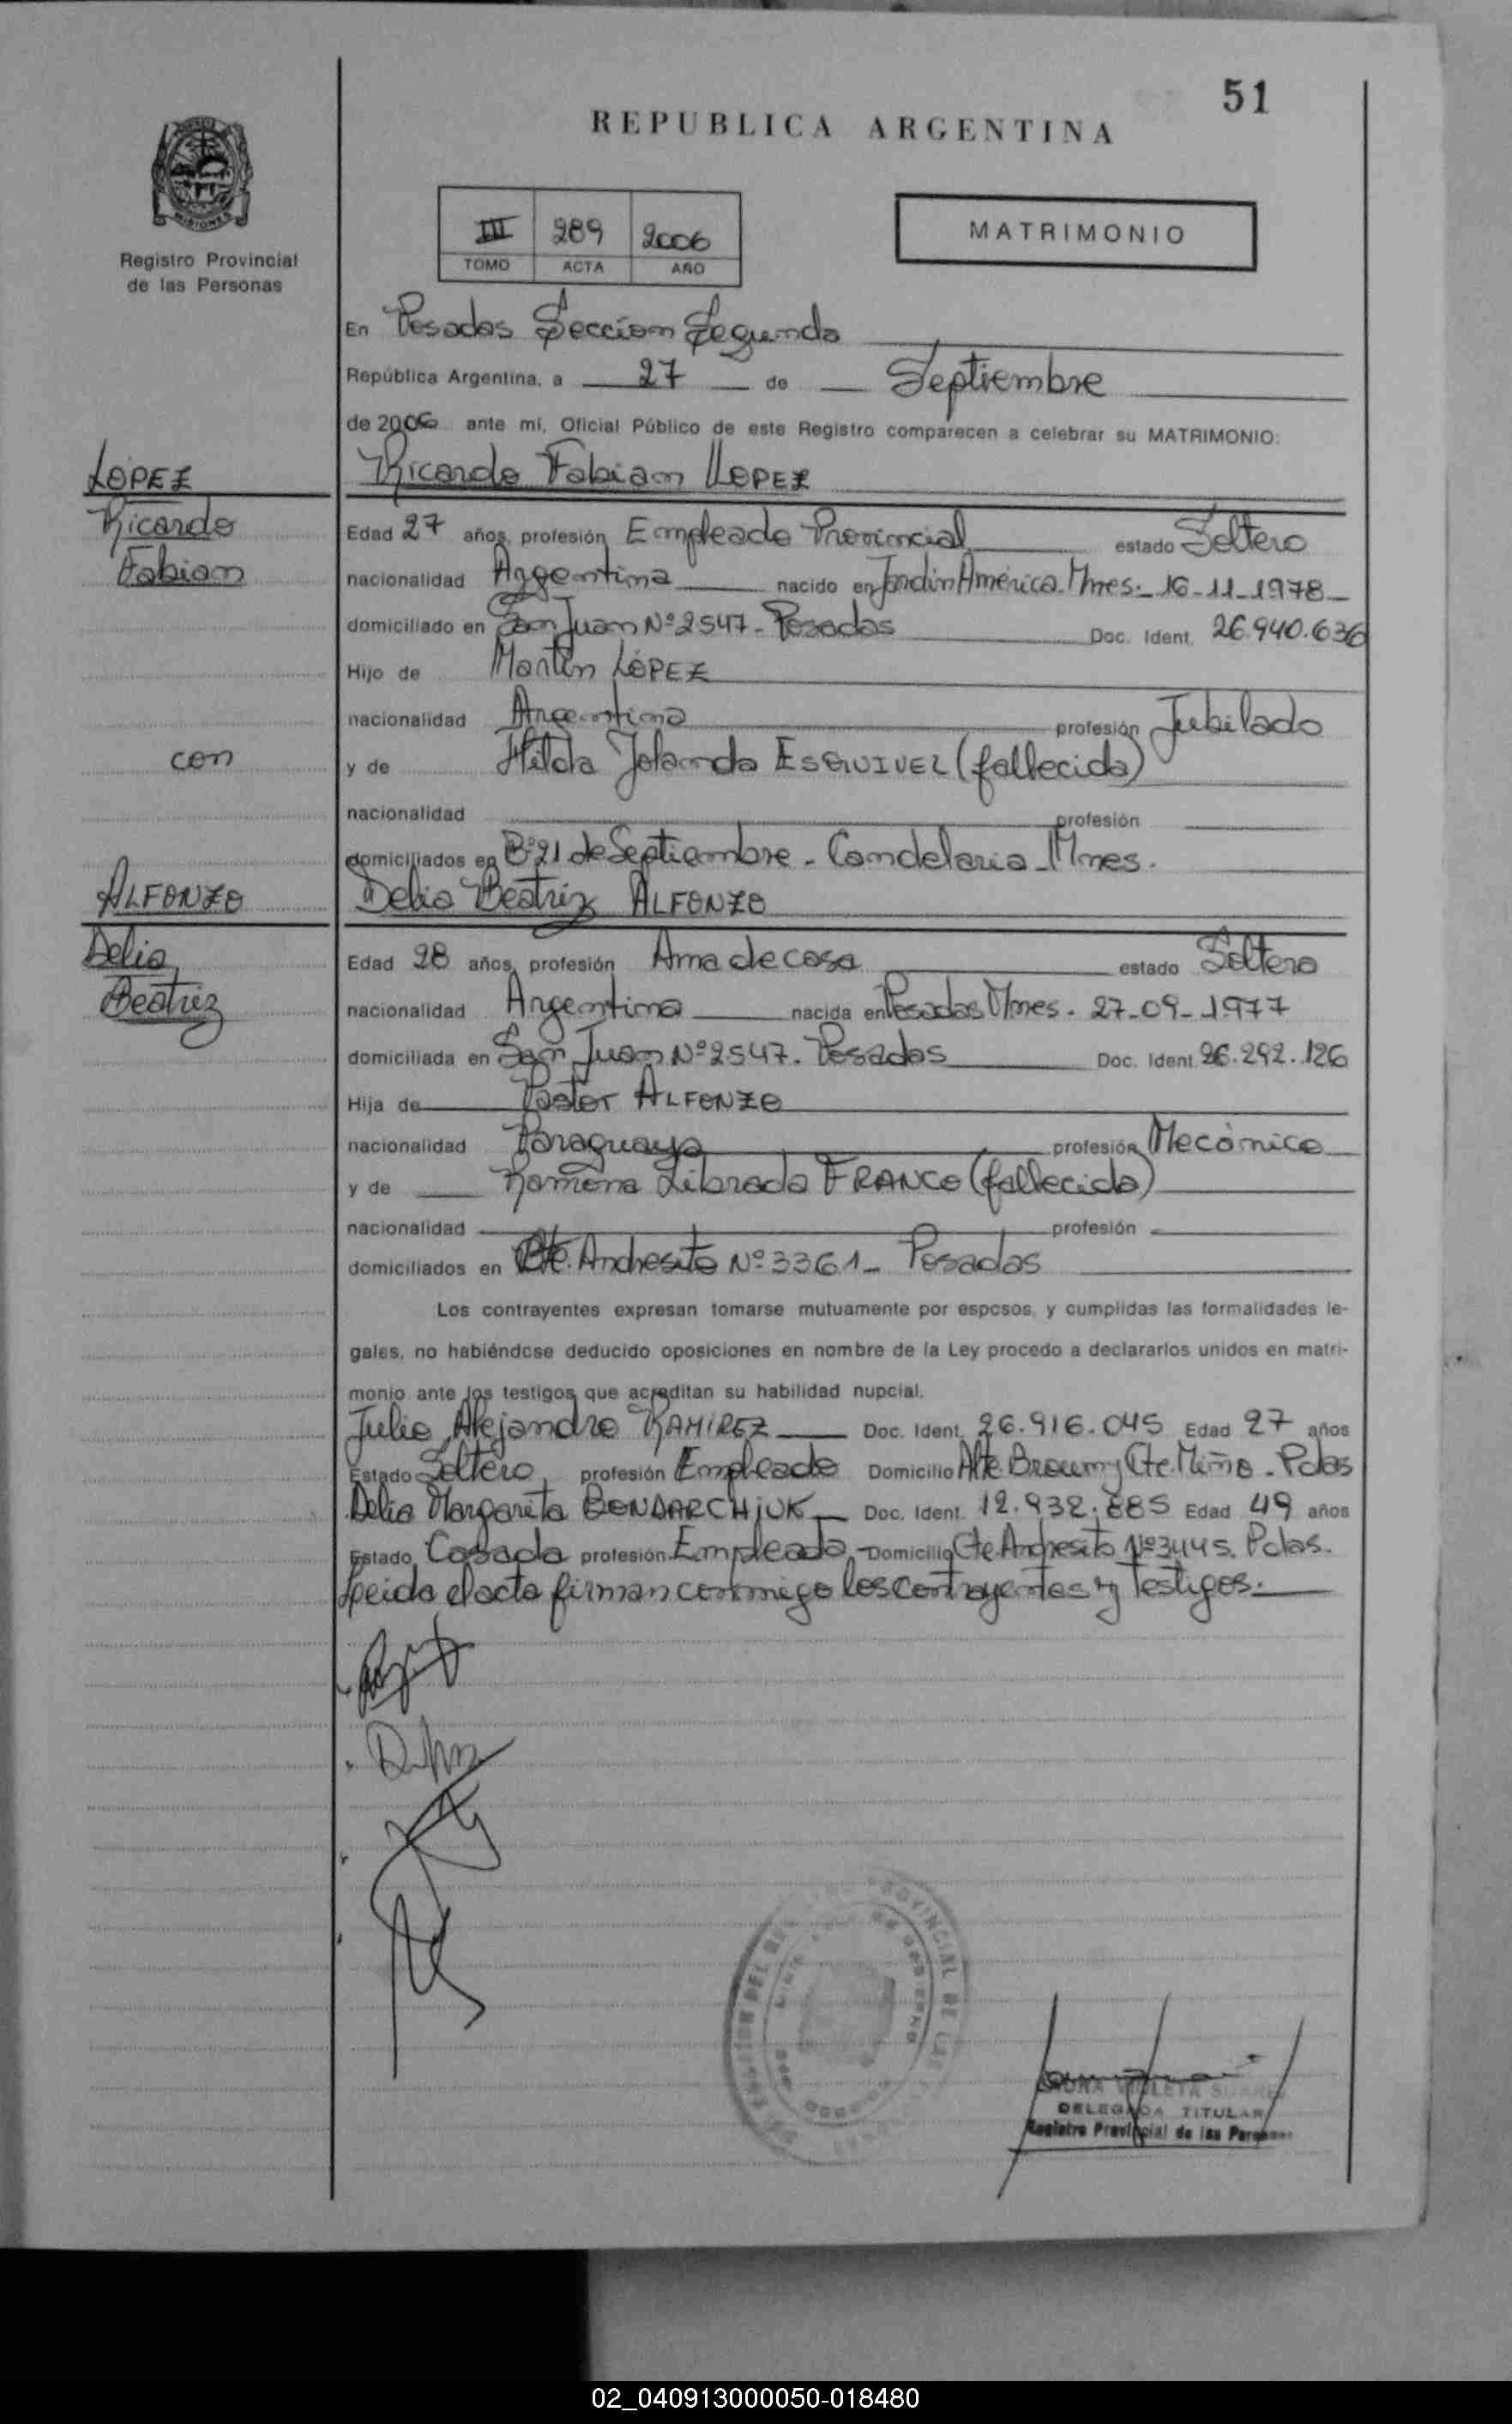 51
REPUBLICA ARGENTINA
MISIONES
Registro Provincial
de las Personas
III 289 2006
TOMO ACTA AÑO
MATRIMONIO
En Posadas Sección Segunda
República Argentina, a 27 de Septiembre
de 2006 ante mí, Oficial Público de este Registro comparecen a celebrar su MATRIMONIO:
LÓPEZ
Ricardo
Fabian
con
ALFONZO
Delia
Beatriz
Ricardo Fabian LÓPEZ
Edad 27 años, profesión Empleado Provincial estado Soltero
nacionalidad Argentina nacido en Jardín América. Mnes. 16-11-1978
domiciliado en San Juan Nº 2547 - Posadas Doc. Ident. 26.940.636
Hijo de Martin LÓPEZ
nacionalidad Argentina profesión Jubilado
y de Hilda Yolanda ESQUIVEL (fallecida)
nacionalidad profesión
domiciliados en Bº 21 de Septiembre - Candelaria - Mnes.
Delia Beatriz ALFONZO
Edad 28 años, profesión Ama de casa estado Soltera
nacionalidad Argentina nacida en Posadas Mnes. 27-09-1977
domiciliada en San Juan Nº 2547. Posadas Doc. Ident. 26.292.126
Hija de Pastor ALFONZO
nacionalidad Paraguaya profesión Mecánico
y de Ramona Librada FRANCO (fallecida)
nacionalidad profesión
domiciliados en Cte. Andresito Nº 3361 - Posadas
Los contrayentes expresan tomarse mutuamente por esposos, y cumplidas las formalidades le-
gales, no habiéndose deducido oposiciones en nombre de la Ley procedo a declararlos unidos en matri-
monio ante los testigos que acreditan su habilidad nupcial.
Julio Alejandro RAMIREZ Doc. Ident. 26.916.045 Edad 27 años
Estado Soltero profesión Empleado Domicilio Alte. Brown y Cte. Miño - Pdas
Delia Margarita BONDARCHIUK Doc. Ident. 12.932.885 Edad 49 años
Estado Casada profesión Empleada Domicilio Cte Andresito Nº 3445. Pdas.
Leida el acta firman conmigo los contrayentes y testigos.
PROVINCIAL DE LAS
DELEGADA TITULAR
Registro Provincial de las Personas
02_040913000050-018480